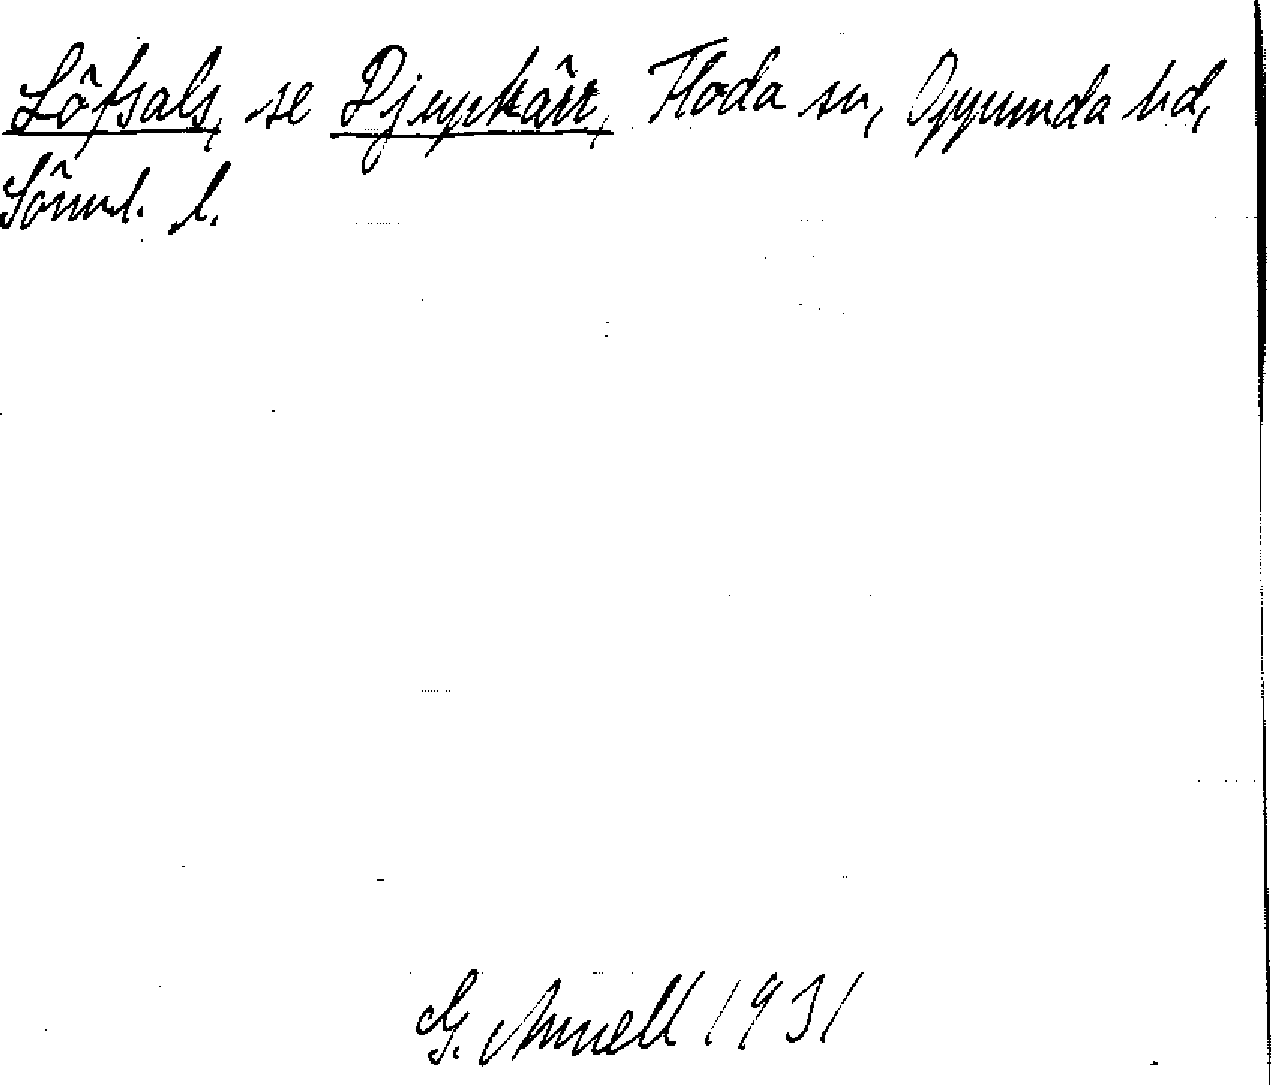 Löfsals, se Djupkärr, Floda sn, Oppunda hd,
Sörml. l.
G. Annell 1931